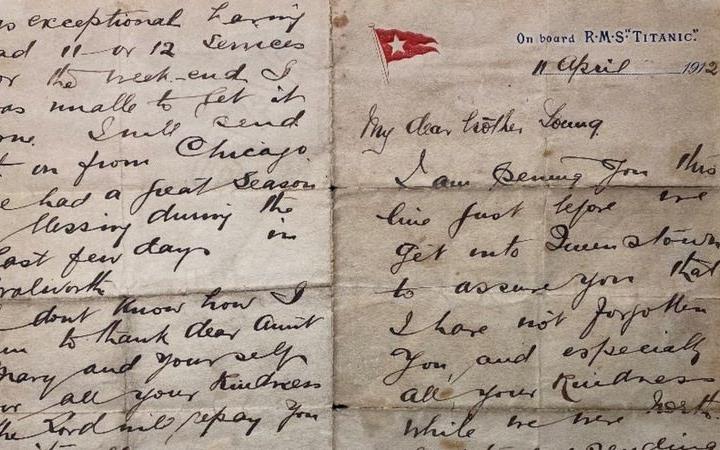 s exceptional having
ad 11 or 12 Services
or the week-end I
as unable to get it
I will send
t on from Chicago.
e had a great Season
blessing during the
ast few days in
ralworth
dont know how I
to thank dear Aunt
mary and yourself
or all your kindness
he Lord will repay you
On board R·M·S "TITANIC."
11 April 1912
My dear brother Young
I am penning you this
line just before we
get into Queenstown
to assure you that
I have not forgotten
you, and especially
all your kindness
while we were North